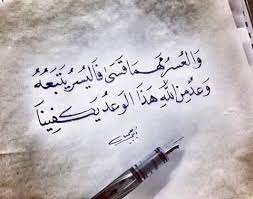 وَالعُسرُ مَهمَا قَسَى فَاليُسرُ يَتبَعُهُ
وَعدٌ مِنَ اللهِ هَذَا الوَعدُ يَكفِينَا